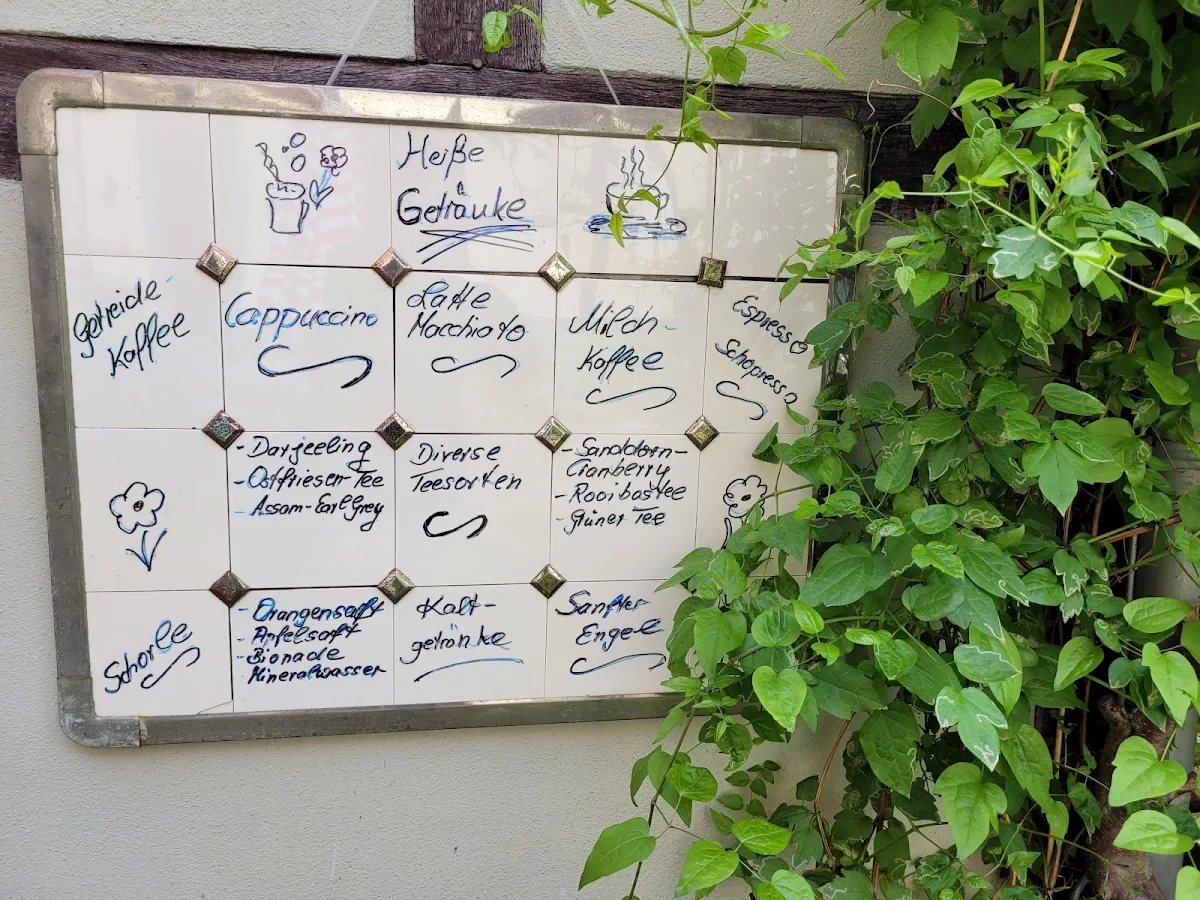 Heiße
Getränke
Getreide-
Kaffee
Cappuccino
Latte
Macchiato
Milch-
Kaffee
Espresso
Schopresso
- Darjeeling
- Ostfriesen-Tee
- Assam-Earl Grey
Diverse
Teesorten
- Sanddorn-
Cranberry
- Rooibostee
- Grüner Tee
Schorle
- Orangensaft
- Apfelsaft
- Bionade
- Mineralwasser
Kalt-
getränke
Sanfter
Engel